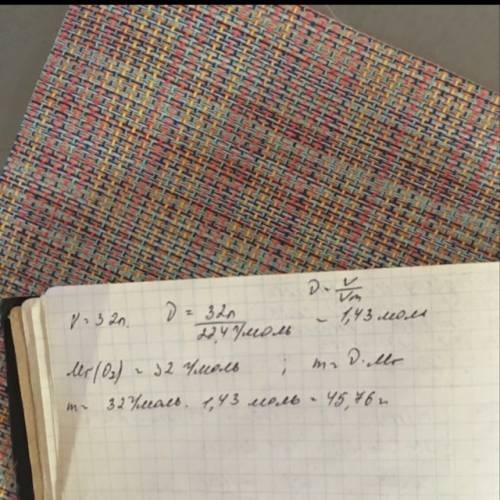 V = V/Vm
V = 32л. V = 32л/22,4 г/моль = 1,43 моль
Mr(O2) = 32 г/моль ; m = V · Mr
m = 32 г/моль · 1,43 моль = 45,76 г